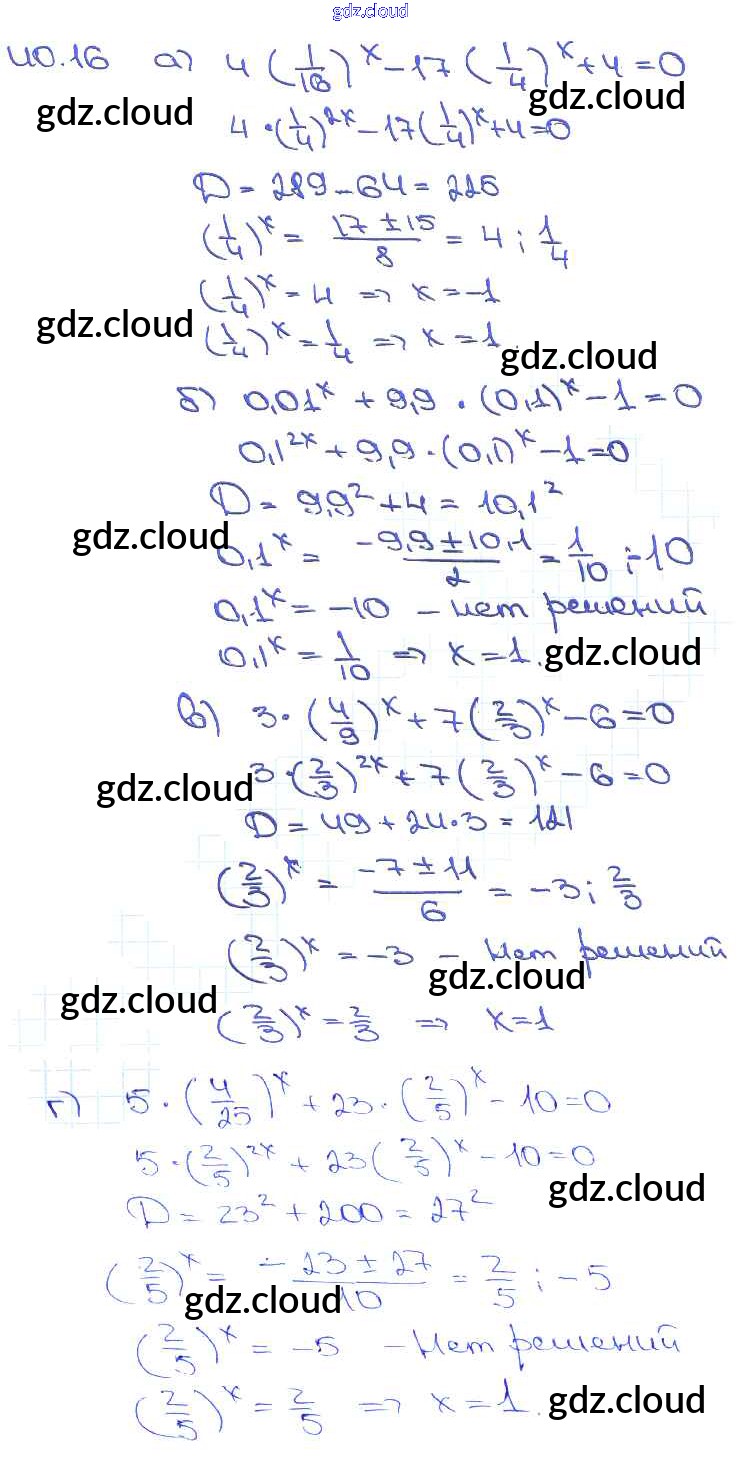 gdz.cloud
40.16 а) 4 (1/16)^x – 17 (1/4)^x + 4 = 0
gdz.cloud gdz.cloud
4 · (1/4)^2x – 17 (1/4)^x + 4 = 0
D = 289 – 64 = 225
(1/4)^x = (17 ± 15)/8 = 4 ; 1/4
(1/4)^x = 4 => x = –1
gdz.cloud
(1/4)^x = 1/4 => x = 1
gdz.cloud
б) 0,01^x + 9,9 · (0,1)^x – 1 = 0
0,1^2x + 9,9 · (0,1)^x – 1 = 0
D = 9,9^2 + 4 = 10,1^2
gdz.cloud
0,1^x = (–9,9 ± 10,1)/2 = 1/10 ; –10
0,1^x = –10 – нет решений
0,1^x = 1/10 => x = 1.
gdz.cloud
в) 3 · (4/9)^x + 7 (2/3)^x – 6 = 0
3 · (2/3)^2x + 7 (2/3)^x – 6 = 0
gdz.cloud
D = 49 + 24 · 3 = 121
(2/3)^x = (–7 ± 11)/6 = –3 ; 2/3
(2/3)^x = –3 – нет решений
gdz.cloud
gdz.cloud
(2/3)^x = 2/3 => x = 1
г) 5 · (4/25)^x + 23 · (2/5)^x – 10 = 0
5 · (2/5)^2x + 23 (2/5)^x – 10 = 0
gdz.cloud
D = 23^2 + 200 = 27^2
(2/5)^x = (–23 ± 27)/10 = 2/5 ; –5
gdz.cloud
(2/5)^x = –5 – нет решений
(2/5)^x = 2/5 => x = 1.
gdz.cloud